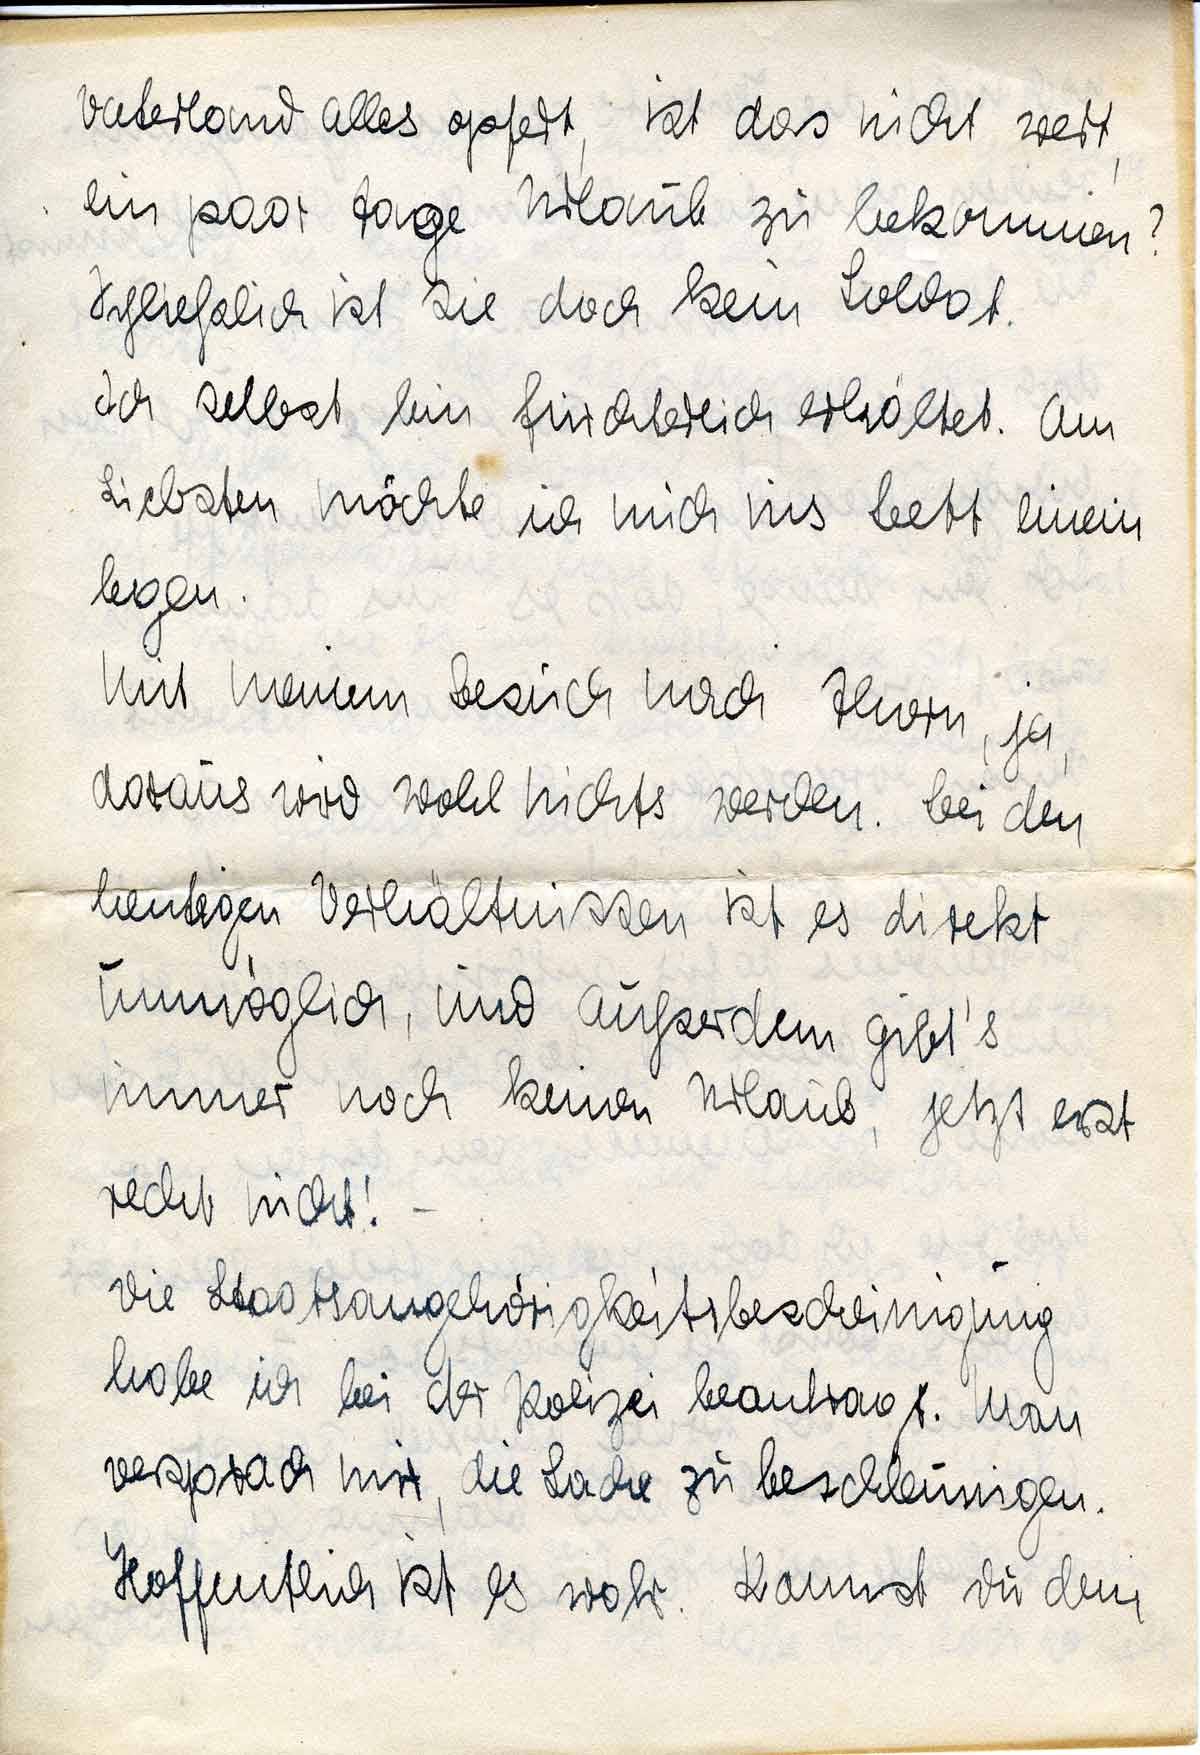 Vaterland alles opfert, ist das nicht wert,
ein paar Tage Urlaub zu bekommen?
Schließlich ist sie doch kein Soldat.
Ich selbst bin fürchterlich erkältet. Am
Liebsten möchte ich mich ins Bett hinein
legen.
Mit meinem Besuch nach Thorn, ja,
daraus wird wohl nichts werden. Bei den
heutigen Verhältnissen ist es direkt
unmöglich, und außerdem gibt's
immer noch keinen Urlaub, jetzt erst
recht nicht! –
Die Staatsangehörigkeitsbescheinigung
habe ich bei der Polizei beantragt. Man
versprach mir, die Sache zu beschleunigen.
Hoffentlich ist es wahr. Kannst Du dem